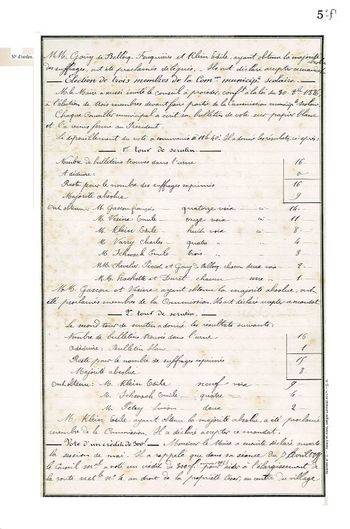 5 f
N° d'ordre
MM. Goüy de Belloy, Fergeron et Klein Edile, ayant obtenu la majorité
des suffrages, ont été proclamés délégués. Ils ont déclaré accepter ce mandat.
Election de trois membres de la Com^on municip^le scolaire.
M. le Maire a aussi invité le conseil à procéder, conf^t à la loi du 30 8^bre 1886,
à l'élection de trois membres devant faire partie de la Commission municip^le scolaire.
Chaque Conseiller municipal a écrit son bulletin de vote sur papier blanc
et l'a remis fermé au Président.
Le dépouillement du vote a commencé à H. Il donne les résultats ci-après:
1er tour de scrutin
Nombre de bulletins trouvés dans l'urne 16
A déduire: 0
Reste pour le nombre des suffrages exprimés 16
Majorité absolue 9
Ont obtenu: M. Gascon François quatorze voix 14
M. Vésine Emile onze voix 11
M. Klein Edile huit voix 8
M. Varry Charles quatre 4
M. Schwach Emile trois 3
MM. et Goüy de Belloy, chacun deux voix 2
MM. et chacun une 1
MM. Gascon et Vésine, ayant obtenu la majorité absolue, ont
été proclamés membres de la Commission. Ils ont déclaré accepter ce mandat.
2e tour de scrutin
Le second tour de scrutin a donné les résultats suivants:
Nombre de bulletins trouvés dans l'urne 16
A déduire: Bulletin blanc 1
Reste pour le nombre de suffrages exprimés 15
Majorité absolue 8
Ont obtenu: M. Klein Edile neuf voix 9
M. Schwach Emile, quatre 4
M. deux 2
M. Klein Edile ayant obtenu la majorité absolue, a été proclamé
membre de la Commission. Il a déclaré accepter ce mandat.
Vote d'un crédit de 300f. Monsieur le Maire a ensuite déclaré ouverte
la session de mai. Il a rappelé que dans sa séance du 7 avril
le Conseil a voté un crédit de 300f pour aider à l'élargissement de
la route N° au droit de la propriété au centre du village